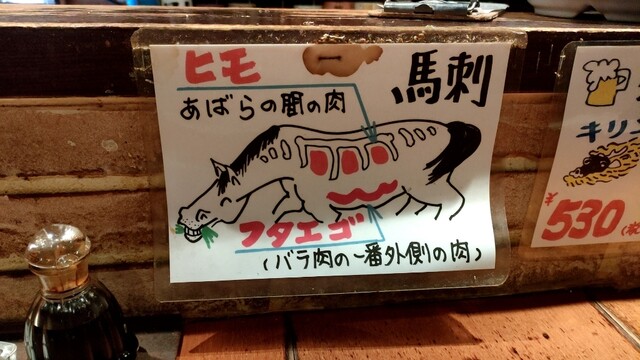 ヒモ
あばらの間の肉
馬刺
フタエゴ
(バラ肉の一番外側の肉)
キリン
¥530